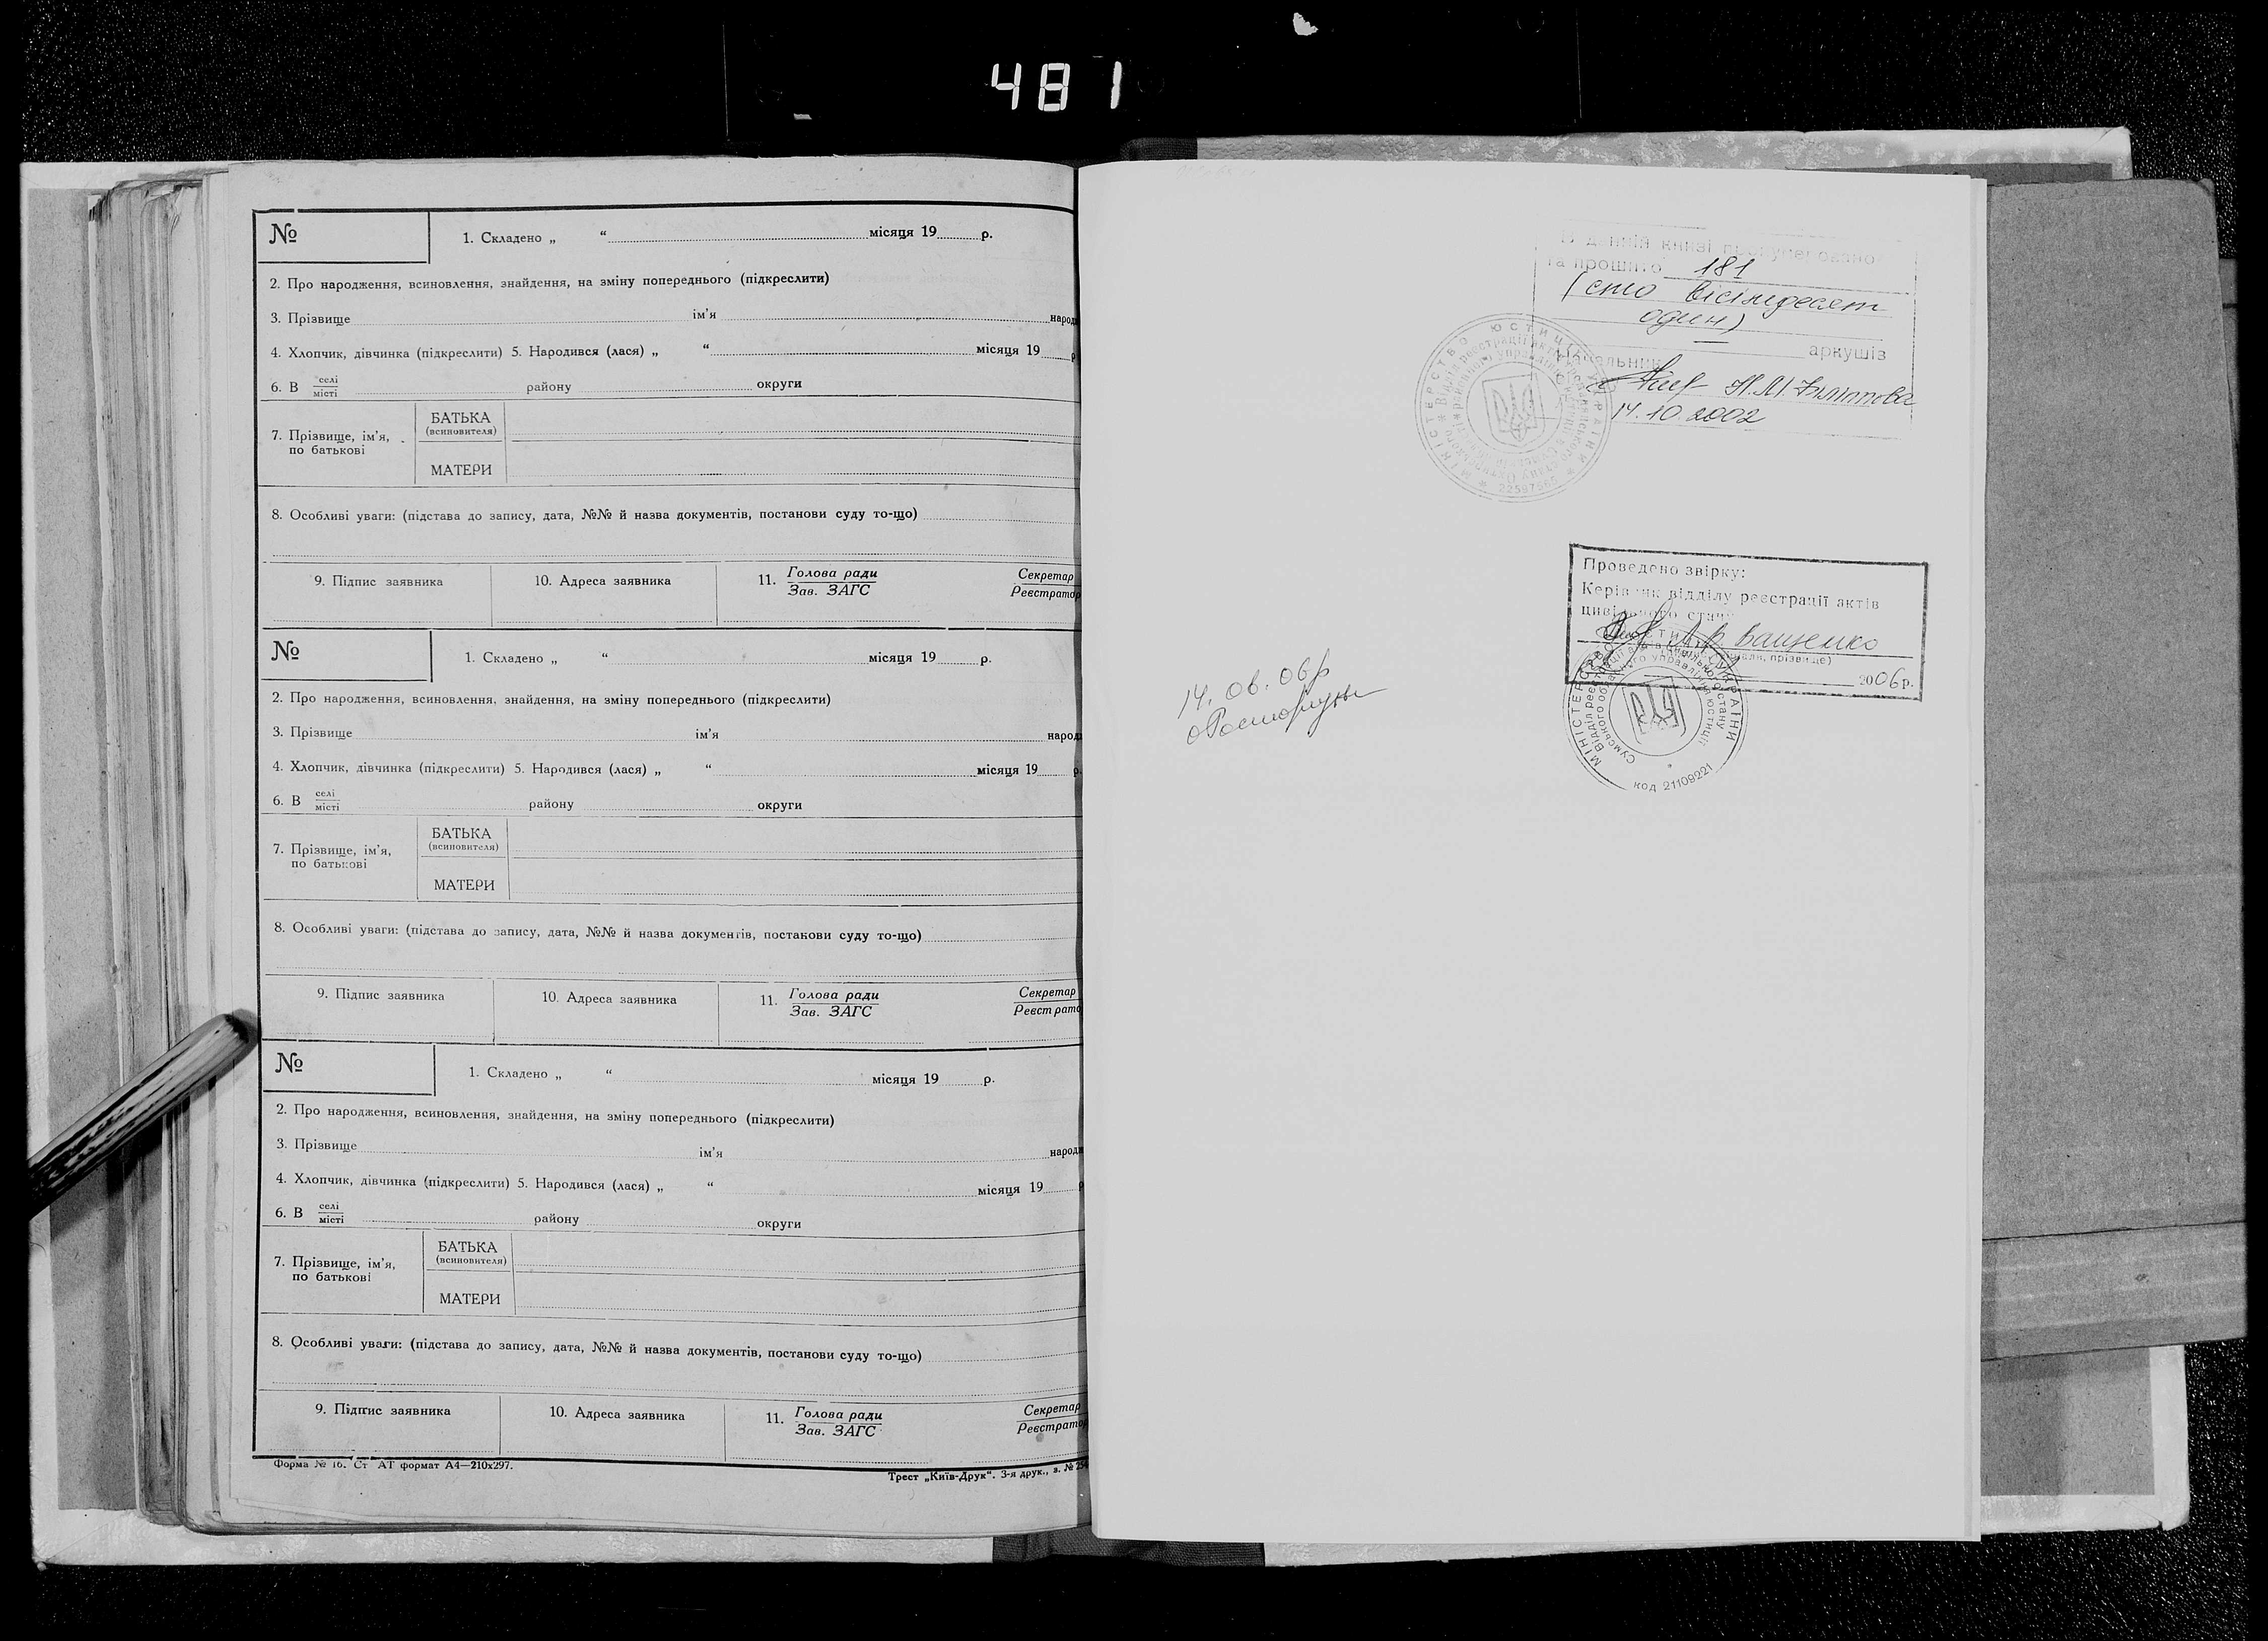 481
№
1. Складено „ “ місяця 19 р.
2. Про народження, всиновлення, знайдення, на зміну попереднього (підкреслити)
3. Прізвище ім’я народ
4. Хлопчик, дівчинка (підкреслити) 5. Народився (лася) „ “ місяця 19 р
6. В селі місті району округи
7. Прізвище, ім’я, по батькові
БАТЬКА
(всиновителя)
МАТЕРИ
8. Особливі уваги: (підстава до запису, дата, №№ й назва документів, постанови суду то-що)
9. Підпис заявника 10. Адреса заявника 11. Голова ради Секретар
Зав. ЗАГС Реєстратор
№
1. Складено „ “ місяця 19 р.
2. Про народження, всиновлення, знайдення, на зміну попереднього (підкреслити)
3. Прізвище ім’я народ
4. Хлопчик, дівчинка (підкреслити) 5. Народився (лася) „ “ місяця 19 р.
6. В селі місті району округи
7. Прізвище, ім’я, по батькові
БАТЬКА
(всиновителя)
МАТЕРИ
8. Особливі уваги: (підстава до запису, дата, №№ й назва документів, постанови суду то-що)
9. Підпис заявника 10. Адреса заявника 11. Голова ради Секретар
Зав. ЗАГС Реєстрато
№
1. Складено „ “ місяця 19 р.
2. Про народження, всиновлення, знайдення, на зміну попереднього (підкреслити)
3. Прізвище ім’я народ
4. Хлопчик, дівчинка (підкреслити) 5. Народився (лася) „ “ місяця 19
6. В селі місті району округи
7. Прізвище, ім’я, по батькові
БАТЬКА
(всиновителя)
МАТЕРИ
8. Особливі уваги: (підстава до запису, дата, №№ й назва документів, постанови суду то-що)
9. Підпис заявника 10. Адреса заявника 11. Голова ради Секретар
Зав. ЗАГС Реєстратор
Форма № 16. Ст АТ формат А4—210х297.
Трест „Київ-Друк“. 3-я друк., з. №
В данній книзі пронумеровано
та прошито 181
(сто вісімдесят
один)
аркушів
Начальник
14.10.2002
МІНІСТЕРСТВО ЮСТИЦІЇ УКРАЇНИ
22597565
Проведено звірку:
Керівник відділу реєстрації актів
цивільного стану
Ващенко
прізвище)
2006р.
МІНІСТЕРСТВО ЮСТИЦІЇ УКРАЇНИ
Відділ реєстрації актів цивільного стану
Сумського обласного управління юстиції
код 21109221
14.06.06р